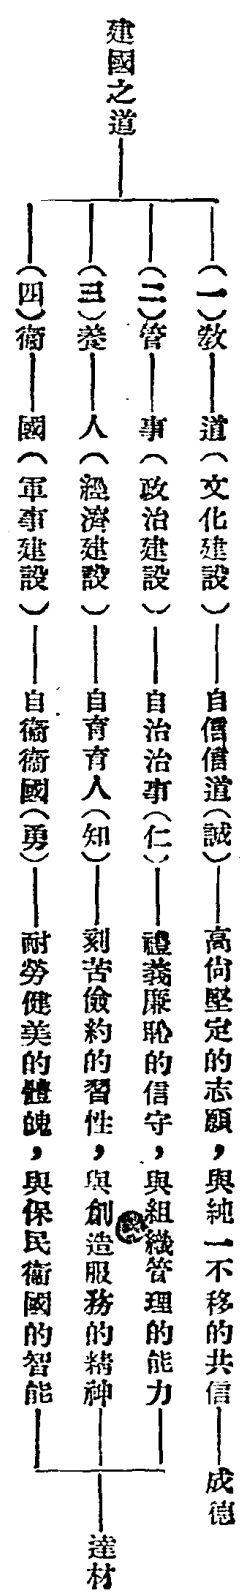 建國之道
(一)教道(文化建設)自信信道(誠)高尙堅定的志願,與純一不移的共信
成德
(二)管事(政治建設)自治治事(仁)禮義廉恥的信守,與組織管理的能力
(三)養人(經濟建設)自育育人(知)刻苦儉約的習性,與創造服務的精神
(四)衞國(軍事建設)自衞衞國(勇)耐勞健美的體魄,與保民衞國的智能
達材